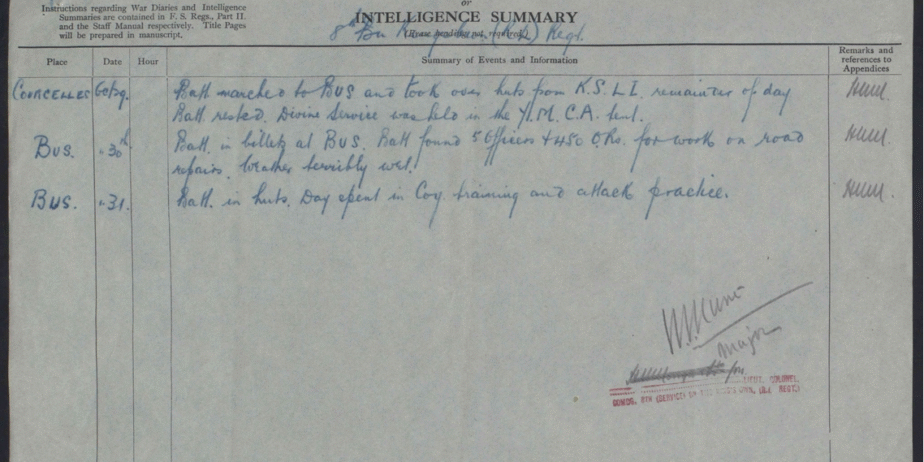 Instructions regarding War Diaries and Intelligence
Summaries are contained in F. S. Regs., Part II.
and the Staff Manual respectively. Title Pages
will be prepared in manuscript.
or
INTELLIGENCE SUMMARY
(Erase heading not required.)
8th Bn Regt.
Place Date Hour Summary of Events and Information Remarks and references to Appendices
COURCELLES Oct 29. Batt marched to BUS and took over huts from K.S.L.I. remainder of day
Batt rested. Divine Service was held in the Y.M.C.A. tent.
BUS. " 30th Batt. in billets at BUS. Batt found 5 Officers + 450 O.Rs. for work on road
repairs. Weather terribly wet.
BUS. " 31. Batt. in huts. Day spent in Coy. training and attack practice.
Major
LIEUT. COLONEL,
(SERVICE) BN